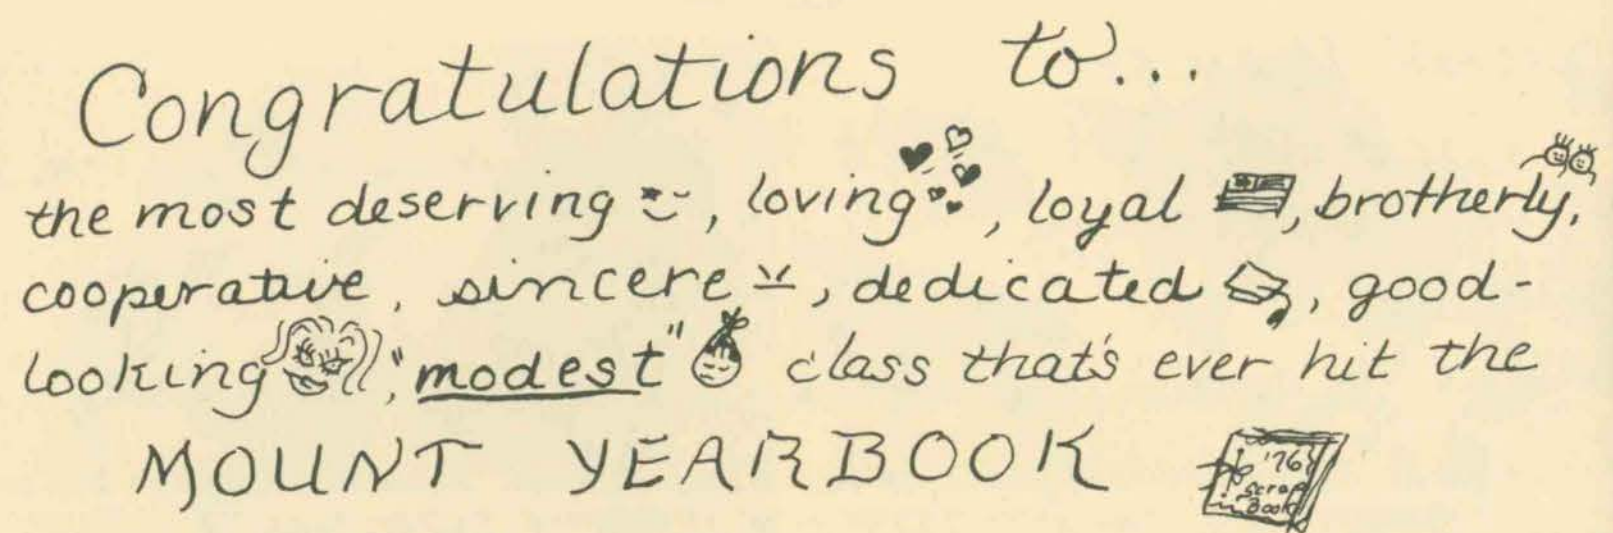 Congratulations to...
the most deserving, loving, loyal, brotherly,
cooperative, sincere, dedicated, good-
looking, "modest" class that's ever hit the
MOUNT YEARBOOK
'76
Scrap
Book